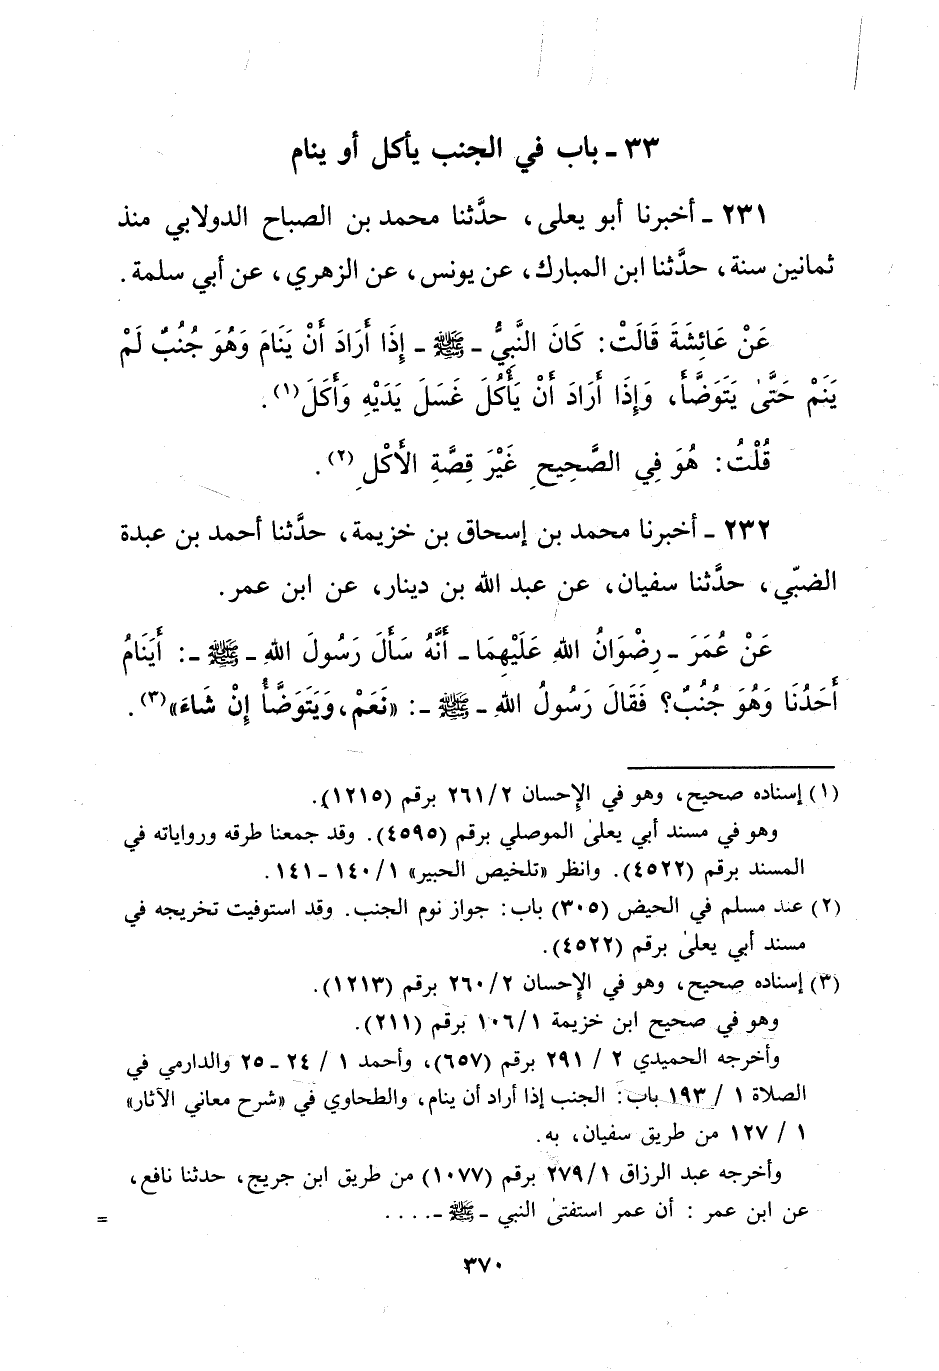 ٣٣ ـ باب في الجنب يأكل أو ينام
٢٣١ ـ أخبرنا أبو يعلى، حدَّثنا محمد بن الصباح الدولابي منذ
ثمانين سنة، حدَّثنا ابن المبارك، عن يونس، عن الزهري، عن أبي سلمة.
عَنْ عَائِشَةَ قَالَتْ: كَانَ النَّبِيُّ ـ ﷺ ـ إِذَا أَرَادَ أَنْ يَنَامَ وَهُوَ جُنُبٌ لَمْ
يَنَمْ حَتَّىٰ يَتَوَضَّأَ، وَإِذَا أَرَادَ أَنْ يَأْكُلَ غَسَلَ يَدَيْهِ وَأَكَلَ(١).
قُلْتُ: هُوَ فِي الصَّحِيحِ غَيْرَ قِصَّةِ الأَكْلِ(٢).
٢٣٢ ـ أخبرنا محمد بن إسحاق بن خزيمة، حدَّثنا أحمد بن عبدة
الضبّي، حدَّثنا سفيان، عن عبد الله بن دينار، عن ابن عمر.
عَنْ عُمَرَ ـ رِضْوَانُ اللهِ عَلَيْهِمَا ـ أَنَّهُ سَأَلَ رَسُولَ اللهِ ـ ﷺ ـ: أَيَنَامُ
أَحَدُنَا وَهُوَ جُنُبٌ؟ فَقَالَ رَسُولُ اللهِ ـ ﷺ ـ: «نَعَمْ، وَيَتَوَضَّأُ إِنْ شَاءَ»(٣).
(١) إسناده صحيح، وهو في الإحسان ٢٦١/٢ برقم (١٢١٥).
وهو في مسند أبي يعلىٰ الموصلي برقم (٤٥٩٥). وقد جمعنا طرقه ورواياته في
المسند برقم (٤٥٢٢). وانظر «تلخيص الحبير» ١٤٠/١ ـ ١٤١.
(٢) عند مسلم في الحيض (٣٠٥) باب: جواز نوم الجنب. وقد استوفيت تخريجه في
مسند أبي يعلىٰ برقم (٤٥٢٢).
(٣) إسناده صحيح، وهو في الإحسان ٢٦٠/٢ برقم (١٢١٣).
وهو في صحيح ابن خزيمة ١٠٦/١ برقم (٢١١).
وأخرجه الحميدي ٢ / ٢٩١ برقم (٦٥٧)، وأحمد ١ / ٢٤ ـ ٢٥ والدارمي في
الصلاة ١ / ١٩٣ باب: الجنب إذا أراد أن ينام، والطحاوي في «شرح معاني الآثار»
١ / ١٢٧ من طريق سفيان، به.
وأخرجه عبد الرزاق ٢٧٩/١ برقم (١٠٧٧) من طريق ابن جريج، حدثنا نافع،
عن ابن عمر : أن عمر استفتىٰ النبي ـ ﷺ ـ.... =
٣٧٠